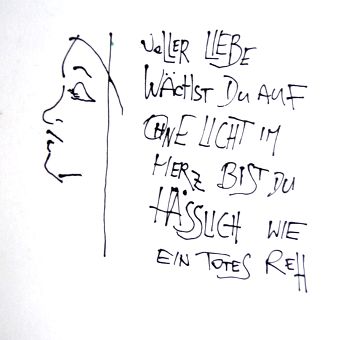 voller LIEBE
WÄCHST DU AUF
OHNE LICHT IM
HERZ BIST DU
HÄSSLICH WIE
EIN TOTES REH